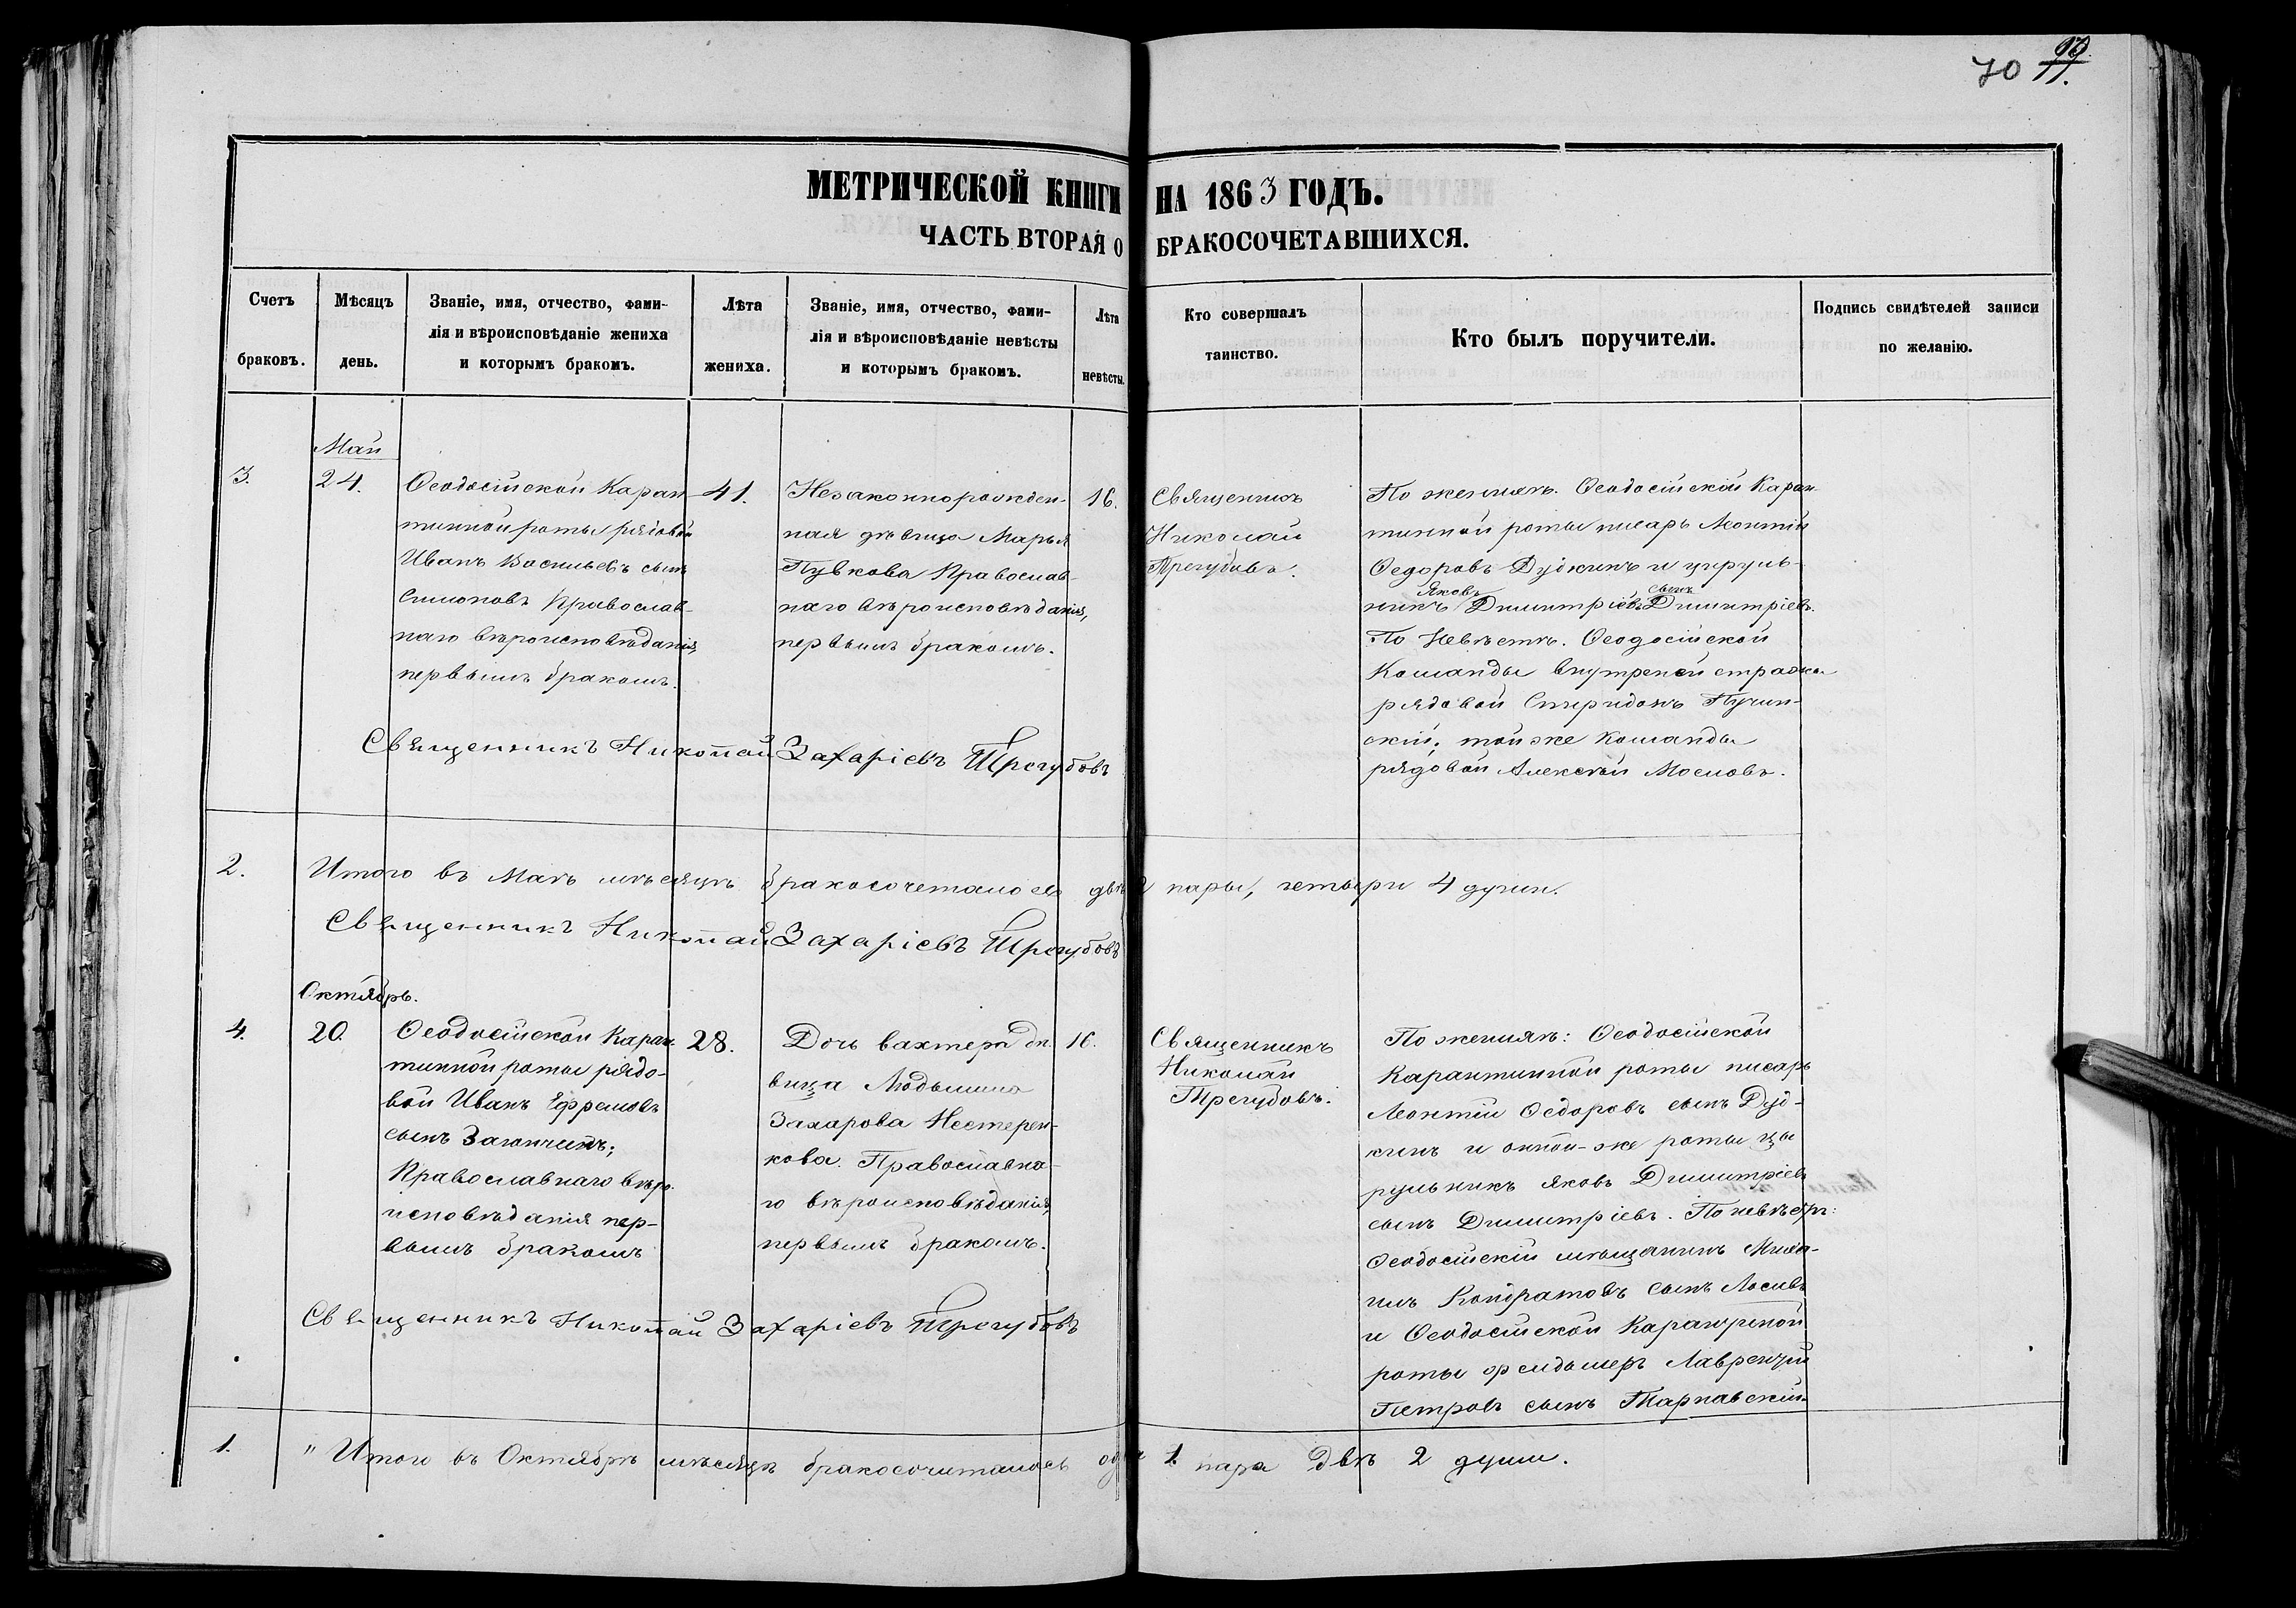 70 93
11.
МЕТРИЧЕСКОЙ КНИГИ НА 1863 ГОДЪ.
ЧАСТЬ ВТОРАЯ О БРАКОСОЧЕТАВШИХСЯ.
Счетъ браковъ.
Мѣсяцъ день.
Званіе, имя, отчество, фами-
лія и вѣроисповѣданіе жениха
и которымъ бракомъ.
Лѣта жениха.
Званіе, имя, отчество, фами-
лія и вѣроисповѣданіе невѣсты
и которымъ бракомъ.
Лѣта невѣсты.
Кто совершалъ
таинство.
Кто былъ поручители.
Подпись свидѣтелей записи
по желанію.
Май
3.
24.
Ѳеодосійской Каран-
тинной роты рядовой
Иванъ Васильевъ сынъ
Симоновъ Православ-
наго вѣроисповѣданія,
первымъ бракомъ.
41.
Незаконнорожден-
ная дѣвица Марья
Пувкова Православ-
наго вѣроисповѣданія,
первымъ бракомъ.
16.
Священникъ
Николай
Трегубовъ.
По женихѣ. Ѳеодосійской Каран-
тинной роты писарь Леонтій
Ѳедоровъ Дудкинъ и цируль-
Яковъ сынъ
никъ Димитріевъ Димитріевъ.
По Невѣстѣ. Ѳеодосійской
Команды внутреней стражи
рядовой Спиридонъ Пучин-
скій; той же команды
рядовой Алексѣй Масловъ.
Священникъ Николай Захаріевъ Трегубовъ
2.
Итого въ Маѣ мѣсяцѣ бракосочеталося двѣ 2 пары, четыри 4 души.
Священникъ Николай Захаріевъ Трегубовъ
Октябрь.
4.
20.
Ѳеодосійской Каран-
тинной роты рядо-
вой Иванъ Ефремовъ
сынъ
Православнаго вѣро-
исповѣданія пер-
вымъ бракомъ
28.
Дочь вахтера дѣ-
вица Людьмила
Захарова Нестерен-
кова. Православна-
го вѣроисповѣданія,
первымъ бракомъ.
16.
Священникъ
Николай
Трегубовъ.
По женихѣ: Ѳеодосійской
Карантинной роты писарь
Леонтій Ѳедоровъ сынъ Дуд-
кинъ и онной-же роты цы
рульникъ Яковъ Димитріевъ
сынъ Димитріевъ. По невѣстѣ:
Ѳеодосійскій мѣщанинъ Миха-
илъ Кондратовъ сынъ Лосивъ
и Ѳеодосійской Карантиной
роты фельдшеръ Лаврентій
Петровъ сынъ Тарнавскій.
Священникъ Николай Захаріевъ Трегубовъ
1.
" Итого въ Октябрѣ мѣсяцѣ бракосочиталось одна 1. пара Двѣ 2 души.